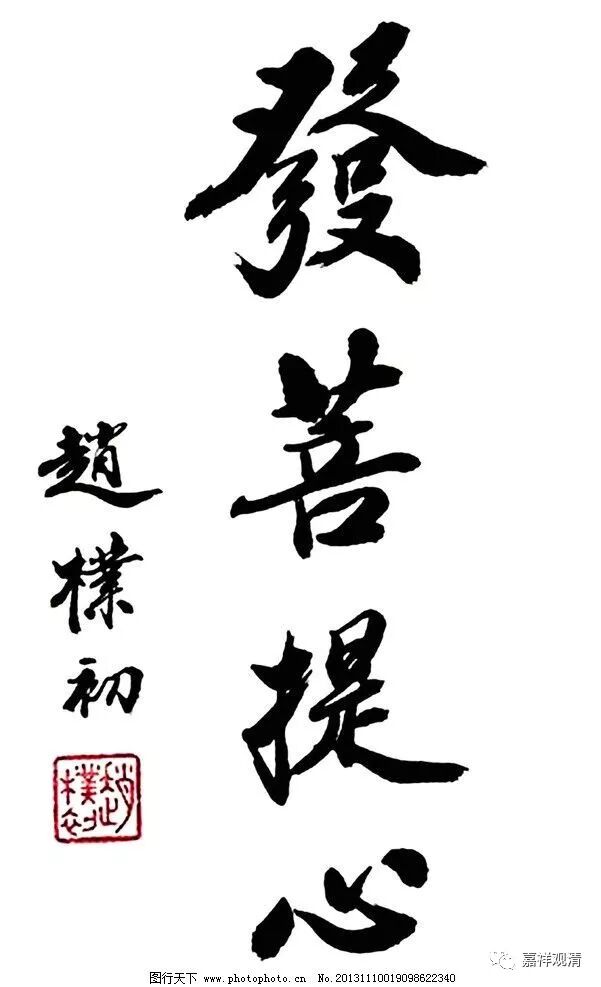 發菩提心
趙樸初
趙樸初
嘉祥观清
图行天下 www.photophoto.cn No.20131110019098622340